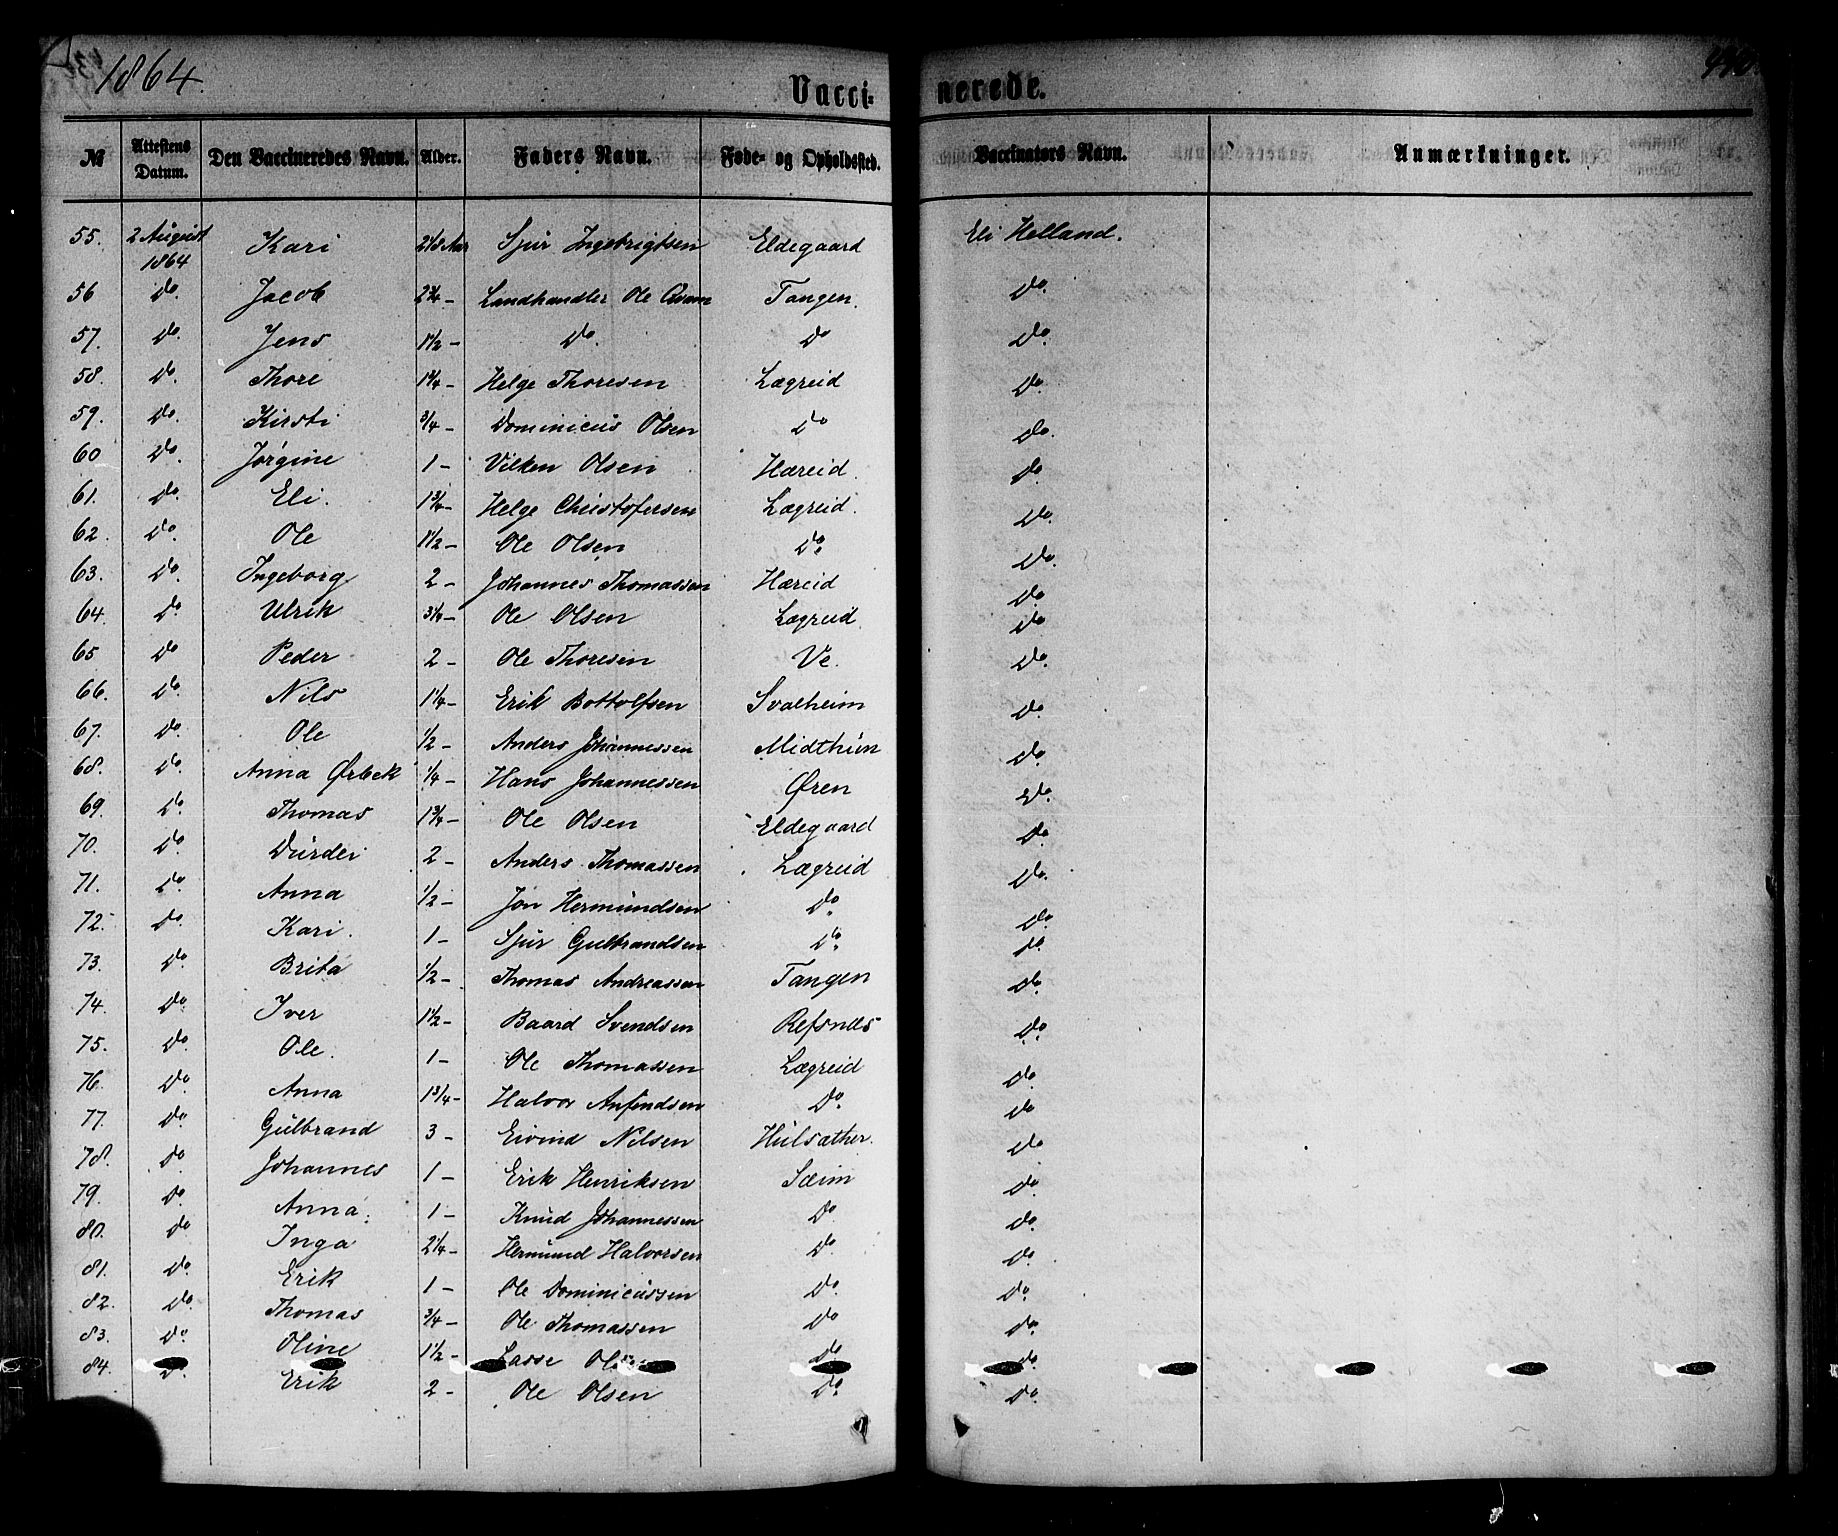 1864.
Vacci= nerede.
№ | Attestens Datum. | Den Vaccineredes Navn. | Alder. | Faders Navn. | Føde- og Opholdssted. | Vaccinators Navn. | Anmærkninger.
55. | 2 August 1864 | Kari | Aar | Sjur Ingebrigtsen | Eldegaard | Eli Helland.
56 | Do. | Jacob | 2¾ - | Landhandler Ole | Tangen. | Do.
57. | Do. | Jens | 1½ - | Do. | Do | Do.
58. | Do. | Thore | 1¼ - | Helge Thoresen | Lægreid | Do.
59. | Do. | Kirsti | ¾ - | Dominicus Olsen | Do | Do.
60 | Do. | Jørgine | 1 - | Vilken Olsen | Hæreid. | Do.
61. | Do. | Eli. | 1¾ - | Helge Christofersen | Lægreid. | Do.
62. | Do. | Ole | 1½ - | Ole Olsen | Do. | Do.
63. | Do. | Ingeborg | 2 - | Johannes Thomassen | Hæreid | Do.
64. | Do | Ulrik | 3¼ - | Ole Olsen | Lægreid. | Do.
65 | Do | Peder | 2 - | Ole Thoresen | Ve. | Do.
66. | Do. | Nils | 1¼ - | Erik Bottolfsen | Svalheim | Do.
67. | Do. | Ole | ½ - | Anders Johannessen | Midthun | Do.
68. | Do. | Anna Ørbek | ¼ - | Hans Johannessen | Øren | Do.
69. | Do | Thomas | 1¾ - | Ole Olsen | Eldegaard | Do.
70. | Do. | Durdei | 2 - | Anders Thomassen | Lægreid | Do.
71. | Do. | Anna | ½ - | Jon Hermundsen | Do. | Do.
72. | Do. | Kari. | 1 - | Sjur Gulbrandsen | Do. | Do.
73. | Do. | Brita | ½ - | Thomas Andreassen | Tangen | Do.
74. | Do. | Iver | 1½ - | Baard Svendsen | Refsnæs | Do.
75. | Do. | Ole. | 1 - | Ole Thomassen | Lægreid | Do.
76. | Do. | Anna | 1¾ - | Halvor Anfindsen | Do. | Do.
77. | Do. | Gulbrand | 3 - | Eivind Nilsen | Hulsæther. | Do.
78. | Do. | Johannes | 1 - | Erik Henriksen | Sæim | Do.
79. | Do. | Anna. | 1 - | Knud Johannessen | Do. | Do.
80. | Do | Inga | 2¼ - | Hermund Halvorsen | Do. | Do.
81. | Do. | Erik | 1 - | Ole Dominicussen | Do. | Do.
82. | Do. | Thomas | ¾ - | Ole Thomassen | Do | Do.
83. | Do. | Oline | 1½ - | Lasse Olsen | Do | Do.
84. | Do. | Erik | 2 - | Ole Olsen | Do. | Do.